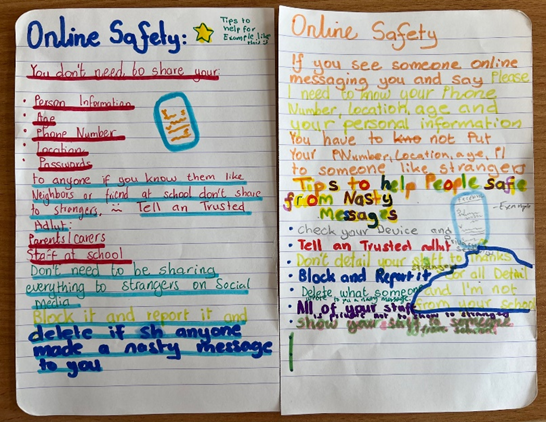 Online Safety:
Tips to
help for
Example like
You don't need to share your
• Person Information
• Age
• Phone Number
• Location
• Passwords
to anyone if you know them like
Neighbors or friend at school don't share
to strangers. Tell an Trusted
Adlut:
Parents/carers
Staff at school
Don't need to be sharing
everything to strangers on Social
media
Block it and report it and
delete if sh anyone
made a nasty message
to you
Online Safety
If you see someone online
messaging you and say Please
I need to know your Phone
Number, location, age and
your personal information
You have to not Put
Your PNumber, Location, age, PI
to someone like strangers
Tips to help People Safie
from Nasty
Messages
• check your Device and
• Tell an Trusted adlut
• Don't detail your to
• Block and Report it for all Detail
• Delete what someone and I'm not
from your school
• All of your staff
• show your staff to someone